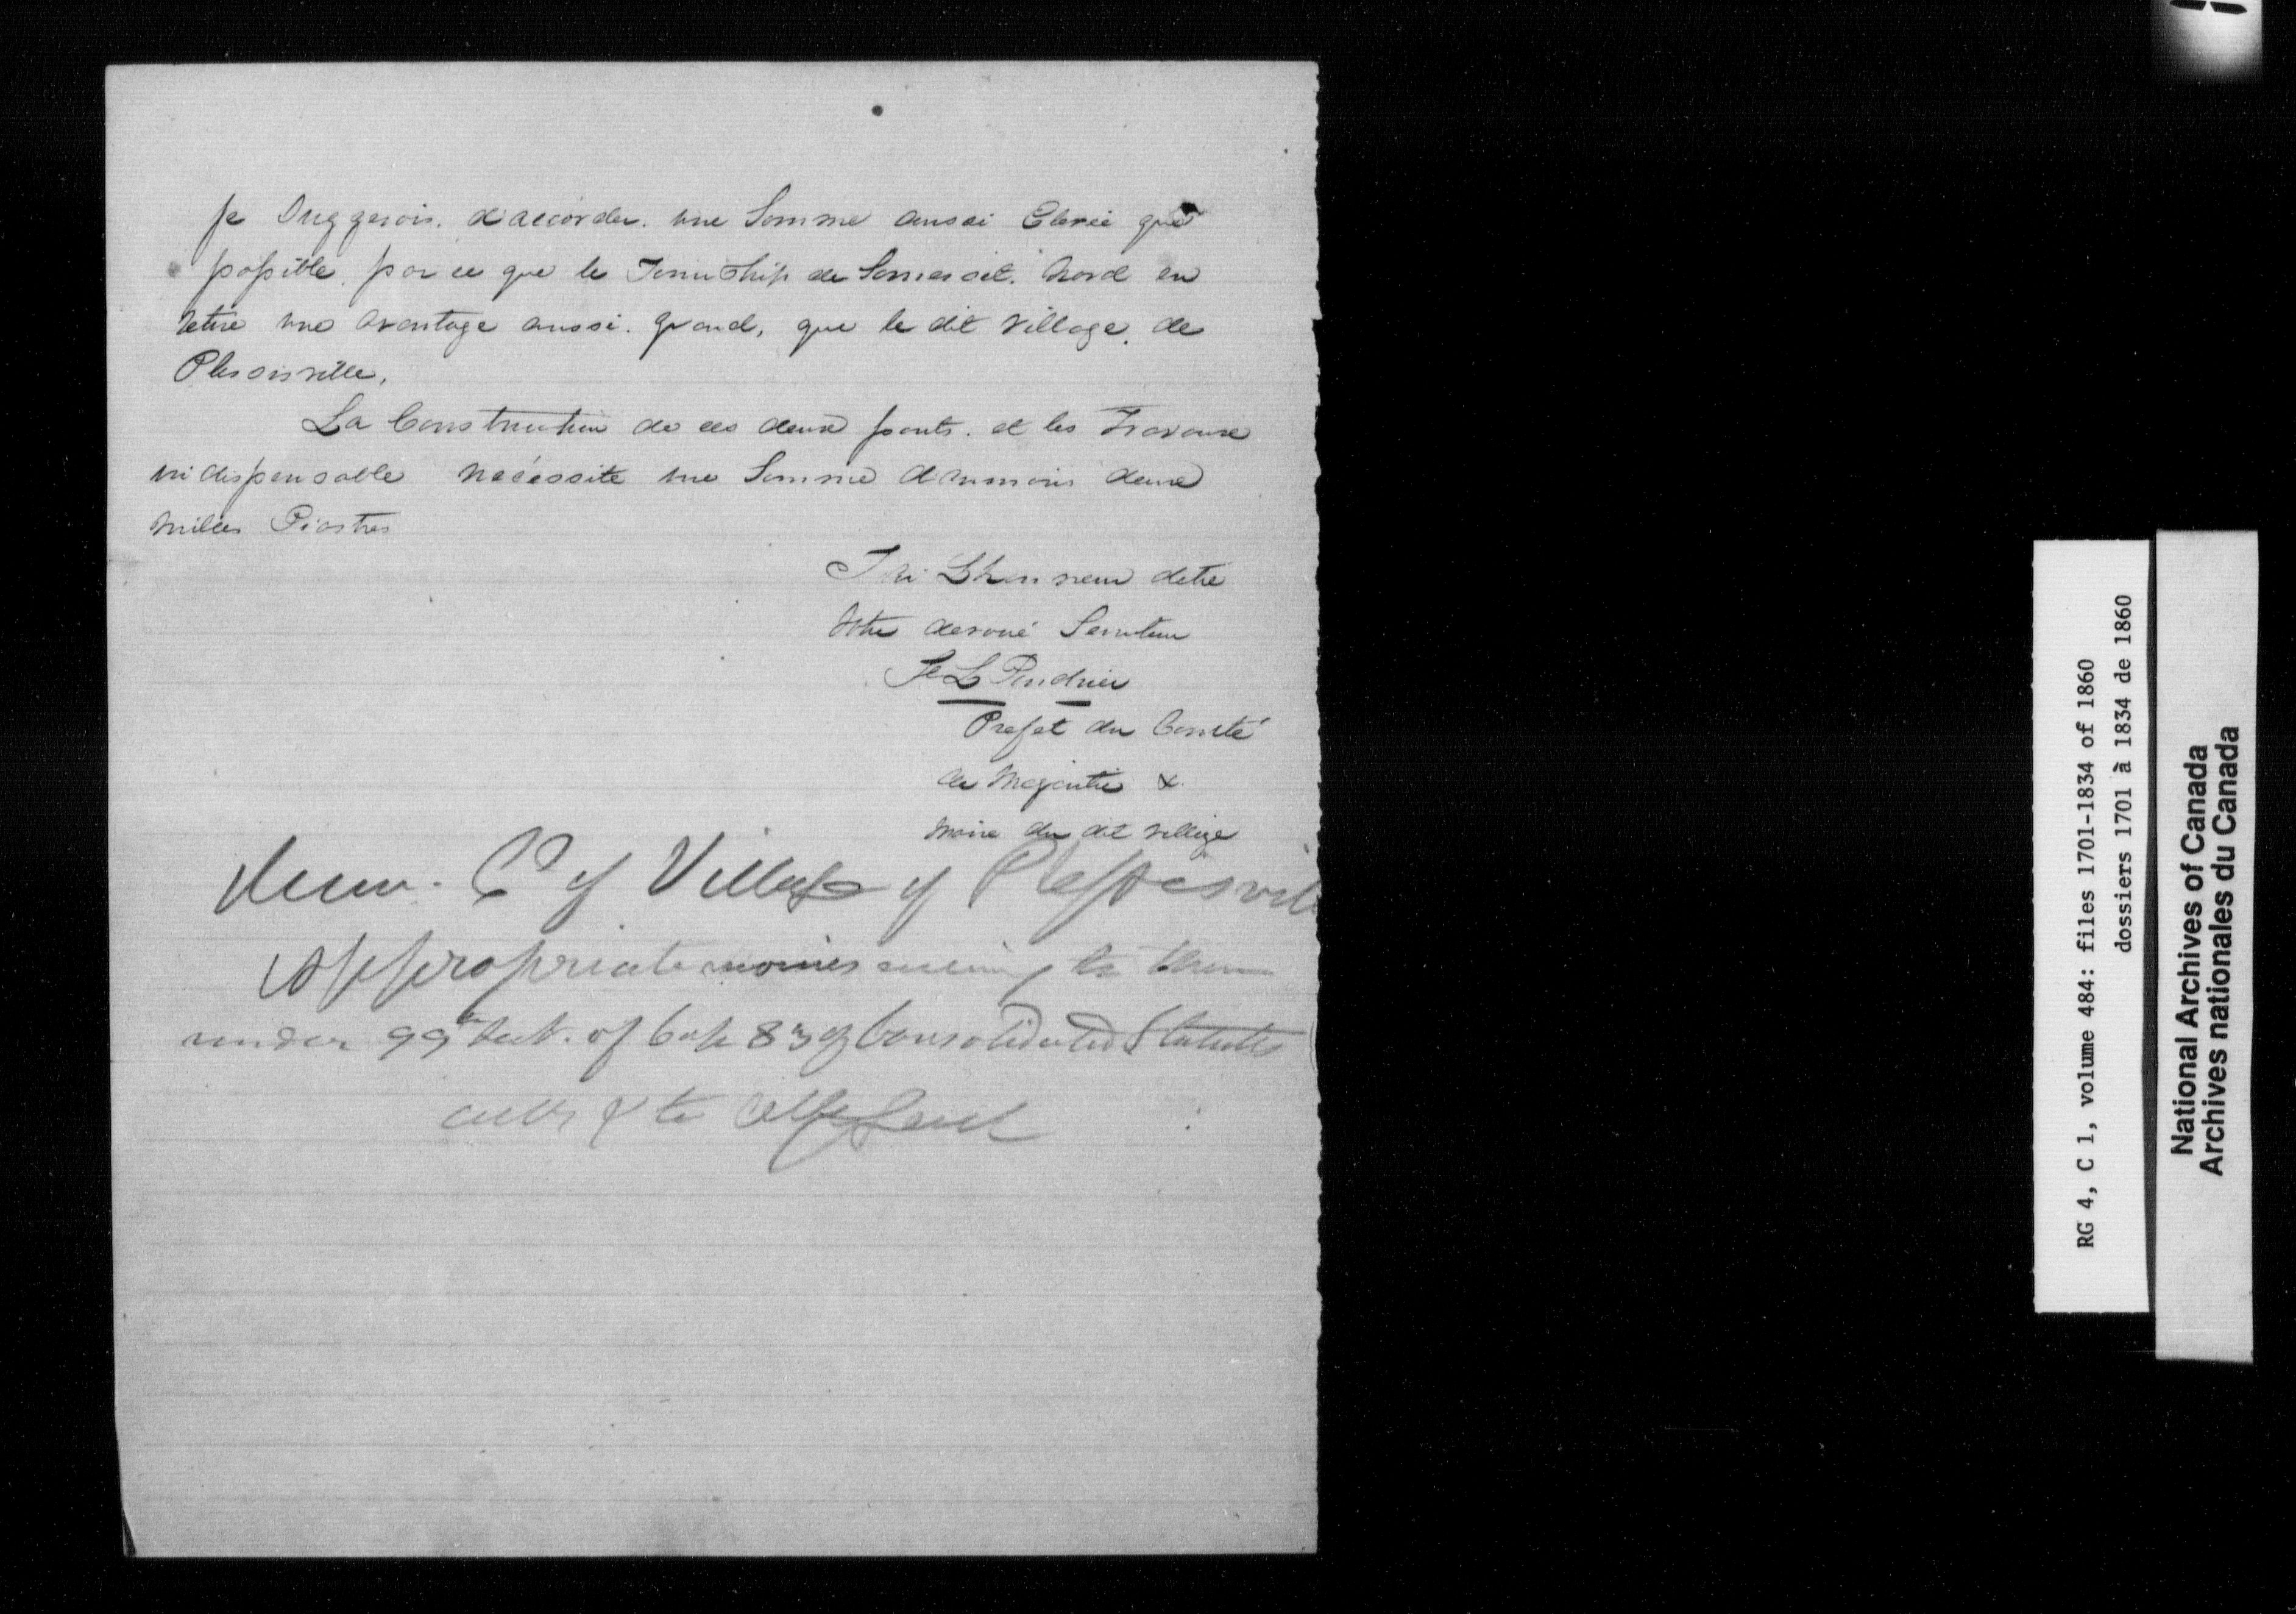 Je Suggerois. d'accorder. une Somme aussi Elevée que
possible. par ce que le TownShip de Somerset. Nord en
retire une avantage aussi. grand, que le dit village. de
Plessisville.
La Construction de ces deux ponts. et les Travaux
indispensable nécéssite une Somme d'aumoins deux
milles Piastres
J'ai L'honneur detre
Votre devoué Serviteur
Prefet du Comté
de Megantic &
Maire du dit village
of Village of Plessisville
Appropriate monies to them
under 99th Sect. of Cap 83 of Consolidated Statutes
RG 4, C 1, volume 484: files 1701-1834 of 1860
dossiers 1701 à 1834 de 1860
National Archives of Canada
Archives nationales du Canada